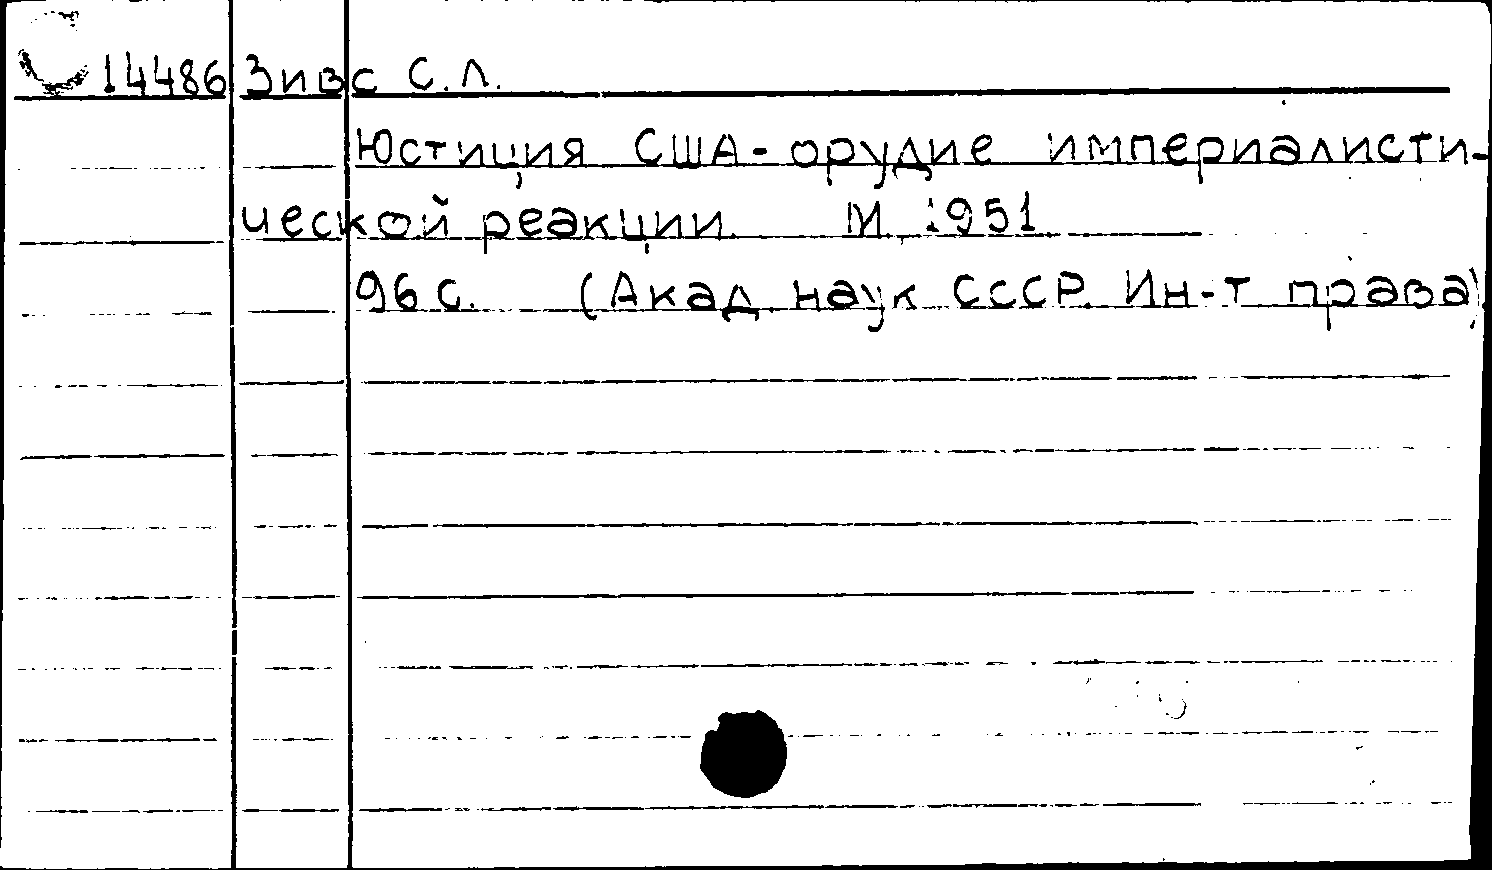 С 14486 Зивс С.Л.
Юстиция США - орудие империалисти-
ческой реакции. М. 1951
96 с. (Акад. наук СССР. Ин-т права).